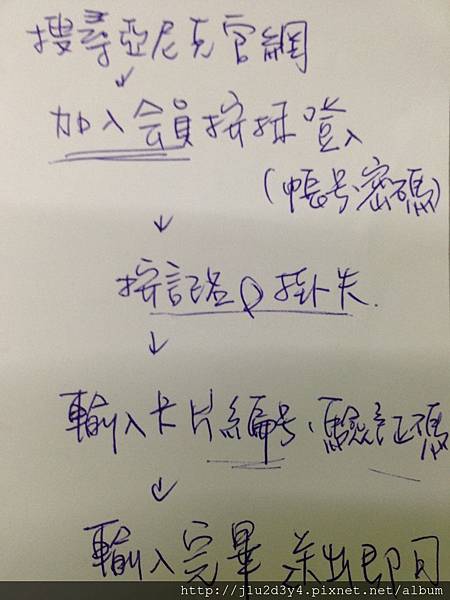 搜尋亞尼克官網
↓
加入会員按掉登入
(帳号.密碼)
↓
按記名Q掛失.
↓
輸入卡片編号、驗証碼
↓
輸入完畢 关出即可
http://jlu2d3y4.pixnet.net/album